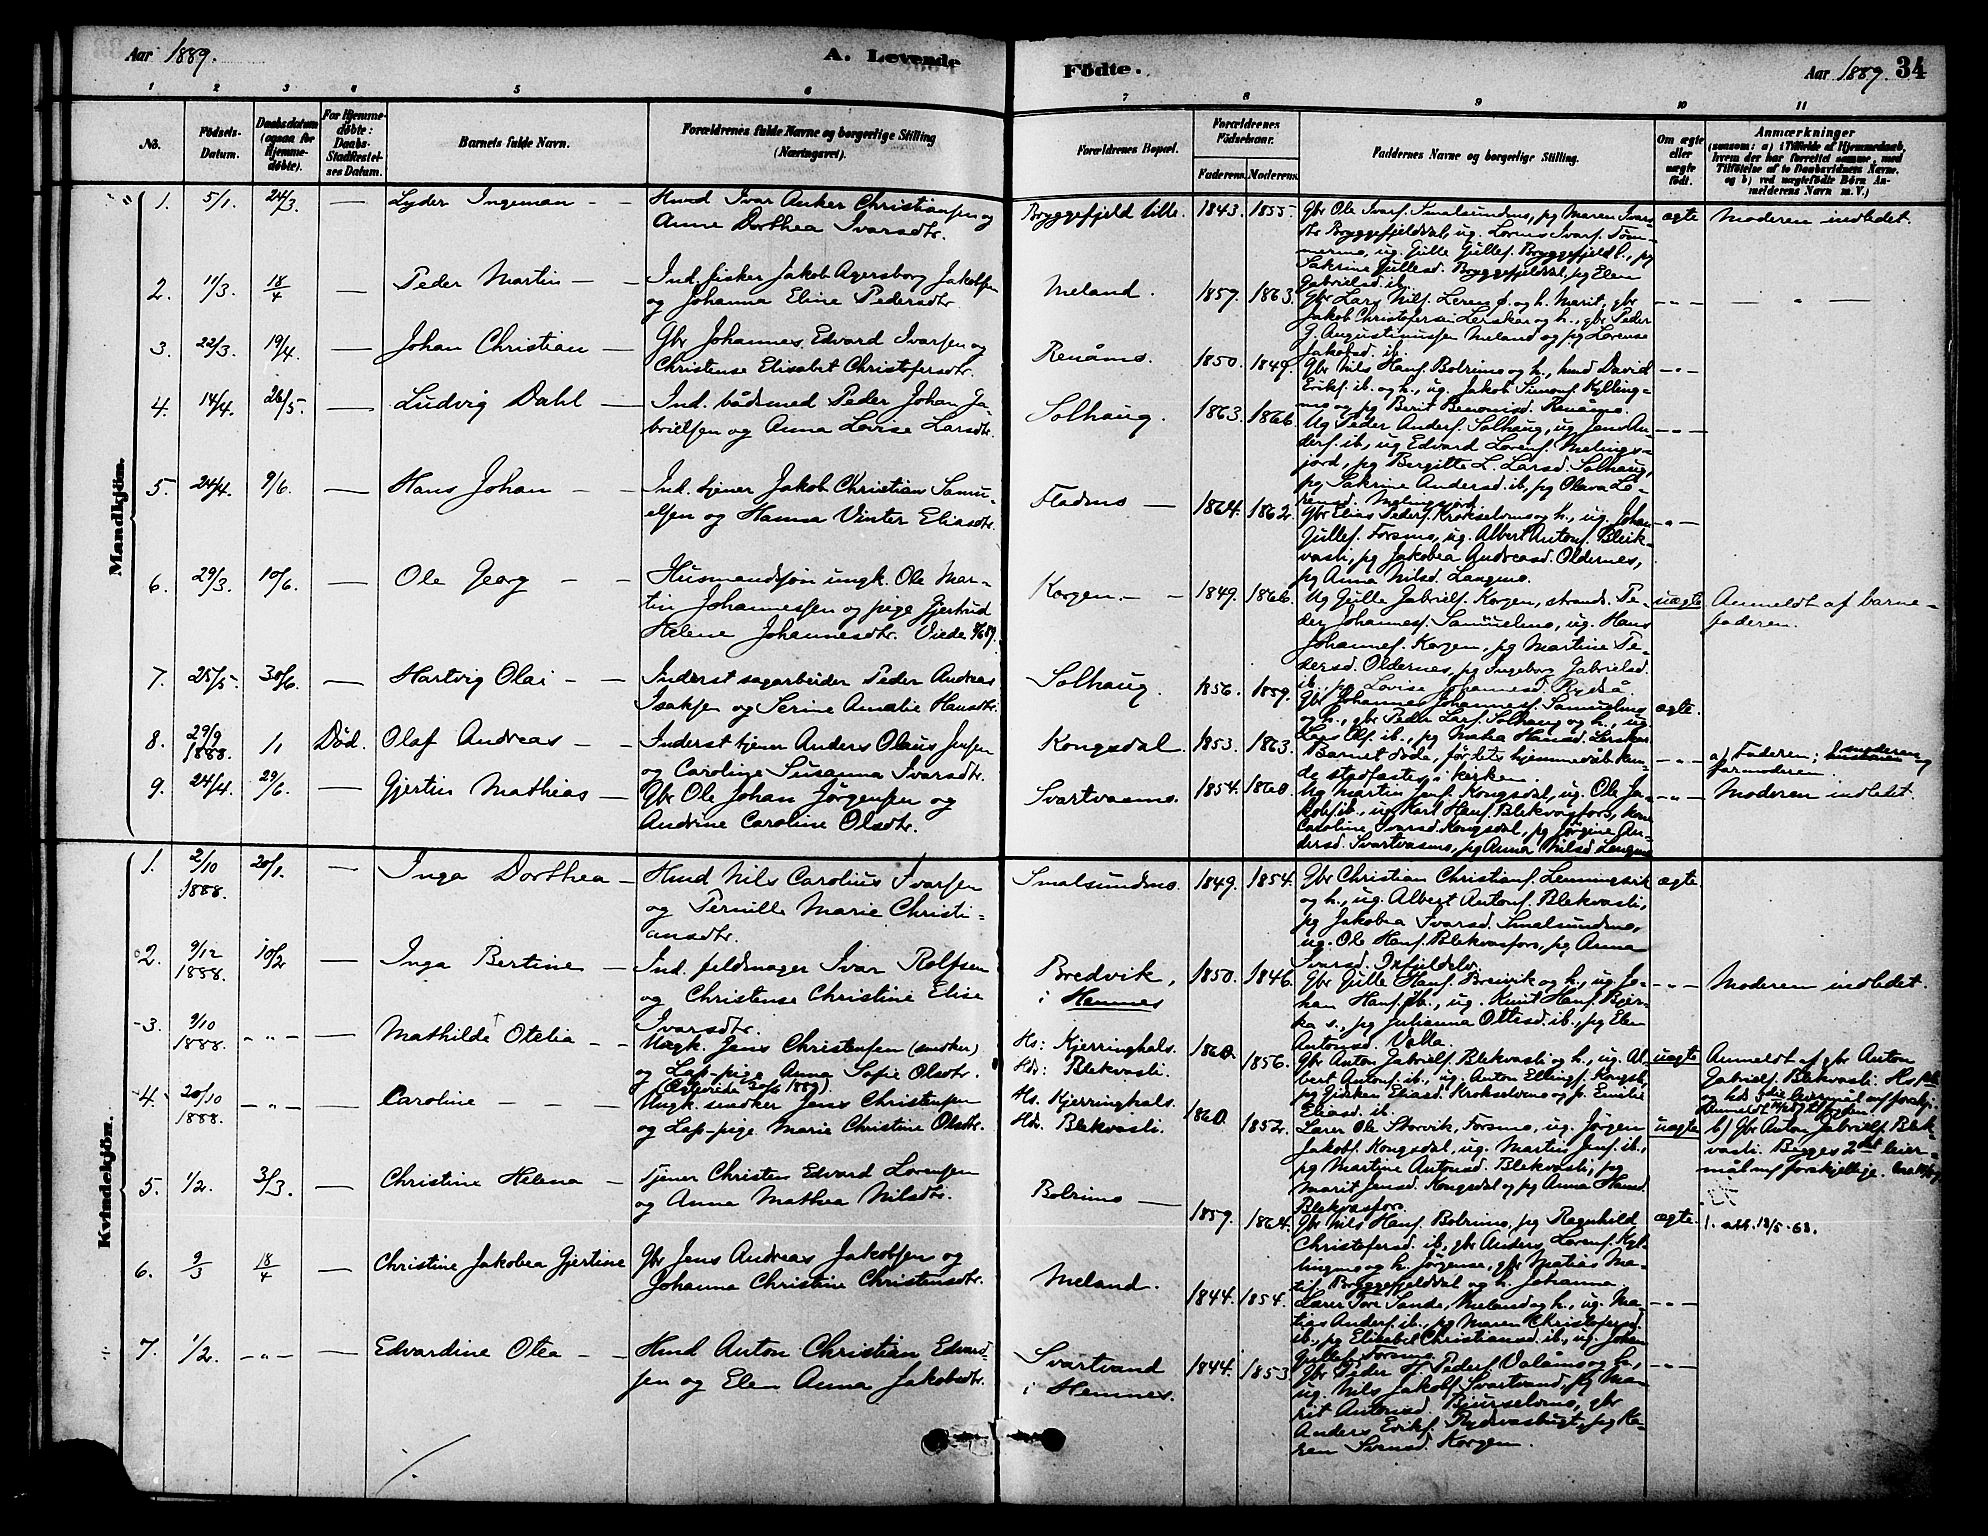 Aar 1889.
A. Levende
Födte.
Aar 1889.
34
1 2 3 4 5 6 7 8 9 10 11
No.
Födsels-
Datum.
Daabsdatum
(ogsaa for
Hjemme-
døbte).
For Hjemme-
døbte:
Daabs-
Stadfæstel-
ses Datum.
Barnets fulde Navn.
Forældrenes fulde Navne og borgerlige Stilling
(Næringsvei).
Forældrenes Bopæl.
Forældrenes
Fødselsaar.
Faderens. Moderens.
Faddernes Navne og borgerlige Stilling.
Om ægte
eller
uægte
født.
Anmærkninger
(saasom: a) i Tilfælde af Hjemmedaab,
hvem der har forrettet samme, med
Tilføielse af to Daabsvidners Navne,
og b) ved uægtefødte Børn An-
melderens Navn m. V.)
Mandkjön.
1. 5/1. 24/3. — Lyder Ingeman — — Husmd Ivar Anker Christiansen og
Anne Dorthea Ivarsdtr.
Bryggefjeld lille. 1843. 1855.
Gbr Ole Ivarf. Smalsundmo, pg Maren Ivars-
dtr Bryggefjelddal, ug. Lorns Ivarf. Töm-
mermo, ug. Gulle Gullef. Bryggefjeld l., pg
Sakrine Gullesd. Bryggefjelddal, pg Elen
Gabrielsd. ib.
ægte Moderen indledet.
2. 11/3. 18/4 — Peder Martin — — Ind. fisker Jakob Agersborg Jakobsen
og Johanna Eline Pedersdtr.
Meland. 1859. 1863.
Gbr Lars Nilf. Leren ö. og h. Marit, gbr
Jakob Christofersen Lerskar og h., gbr Peder
J. Augustinussen Meland og pg Lorense
Jakobsd. ib.
— „ — — „ —
3. 22/3. 19/4. — Johan Christian — Gbr Johannes Edvard Ivarsen og
Christense Elisabet Christofersdtr.
Renåmo. 1850. 1849.
Gbr Nils Hanf. Bolrimo og h., hmd David
Erikf. ib. og h., ug. Jakob Simonf. Kylling-
mo og pg Berit Benonisd. Renåmo.
— „ —
4. 14/4. 26/5. — Ludvig Dahl — Ind. bådsmed Peder Johan Ga-
brielsen og Anna Lovise Larsdtr.
Solhaug. 1863. 1866.
Ug Peder Anderf. Solhaug, ug. Jens An-
derf. ib., ug Edvard Lorenf. Melings-
jord, pg Bergitte L. Larsd. Solhaug,
pg Sakrine Andersd. ib., pg Olava Lo-
rensd. Melingsjord.
— „ —
5. 24/4. 9/6. — Hans Johan — — Ind. tjener Jakob Christian Samu-
elsen og Hanna Vinter Eliasdtr.
Fladmo — 1864. 1862.
Gbr Elias Pederf. Krokselvmo og h., ug. Johan
Gullef. Forsmo, ug. Albert Antonf. Blek-
vasli, pg Jakobea Andreasd. Oldernes,
pg Anna Nilsd. Langmo.
— „ —
6. 29/3. 10/6. — Ole Georg — — Husmandssön ungk. Ole Mar-
tin Johannessen og pige Gjertrud
Helene Johannesdtr. Viede
Korgen. — — 1849. 1866.
Ug Gulle Gabrielf. Korgen, strands. Pe-
der Johannesf. Samuelmo, ug. Hans
Johannesf. Korgen, pg Martine Pe-
dersd. Oldernes, pg Ingeborg Gabrielsd.
ib., pg Lovise Johannesd. Rydså.
uægte Anmeldt af barne-
faderen.
7. 25/5. 30/6. — Hartvig Olai — — Inderst sagarbeider Peder Andreas
Isaksen og Serine Amalie Hansdtr.
Solhaug. 1856. 1859.
Gbr Johannes Johannesf. Samuelmo
og h., gbr Peder Larf. Solhaug og h., ug.
Lars Olf. ib., pg Maka Hansd. Lerskar.
ægte.
8. 29/9
1888. 1/1 Död. Olaf Andreas — — Inderst tjener Anders Olaus Jensen
og Caroline Susanna Ivarsdtr.
Kongsdal. 1853. 1863.
Barnet döde, för dets hjemmedåb kun-
de stadfæstes i kirken.
— „ — a) Faderen; moderen og
farmoderen.
9. 24/4. 29/6. — Gjertin Mathias — Gbr Ole Johan Jörgensen og
Andrine Caroline Olsdtr.
Svartvasmo. 1854. 1860.
Ug Martin Jenf. Kongsdal, ug. Ole Ja-
kobf. ib., ug. Karl Hanf. Blekvasfors, kone
Caroline Ivarsd. Kongsdal, pg Jörgine An-
dersd. Svartvasmo, pg Anna Nilsd. Langmo.
— „ — Moderen indledet.
Kvindekjön.
1. 2/10
1888. 20/1. — Inga Dorthea — Hmd Nils Carolius Ivarsen
og Pernille Marie Christi-
ansdtr.
Smalsundmo. 1849. 1854.
Gbr Christian Christianf. Lenningsvik
og h., ug. Albert Antonf. Blekvasli,
pg Jakobea Ivarsd. Smalsundmo,
ug. Ole Hanf. Blekvasfors, pg Anna
Ivarsd.
ægte.
2. 9/12
1888. 10/2 — Inga Bertine — Ind. feldmager Ivar Rolfsen
og Christense Christine Elise
Ivarsdtr.
Bredvik,
i Hemnes 1850. 1846.
Gbr Gulle Hanf. Breivik og h., ug. Jo-
han Hanf. ib., ug. Knut Hanf. Bjer-
ka s., pg Julianna Ottesd. ib., pg Elen
Antonsd. Valla.
— „ — Moderen indledet.
3. 9/10
1888. — „ — — Mathilde Otelia — — Ungk. Jens Christensen (snedker)
og Lap-pige Anna Sofie Olsdtr.
Hs: Kjerringhals.
Hds: Blekvasli. 1860. 1856.
Gbr Anton Gabrielf. Blekvasli og h., ug. Al-
bert Antonf. ib., ug. Anton Ellingf. Kongsd.,
pg Gjörken Eliasd. Krokselvmo og p. Emelie
Eliasd. ib.
uægte Anmeldt af gbr Anton
Gabrielf. Blekvasli.
4. 20/10
1888. — „ — — Caroline — — — Ungk. snedker Jens Christensen
og Lap-pige Marie Christine Olsdtr.
Hs. Kjerringhals.
Hds. Blekvasli. 1860. 1852.
Lærer Ole Storvik, Forsmo, ug. Jörgen
Jakobf. Kongsdal, ug. Martin Jenf. ib.,
pg Martine Antonsd. Blekvasli, pg
Marit Jensd. Kongsdal og pg Anna Hansd.
Blekvasfors.
uægte b) Gbr Anton Gabrielf. Blek-
vasli. Begges 2det leier-
mål m/ forskjellige.
5. 1/2. 3/3. — Christine Helena — Tjener Christen Edvard Lorensen
og Anna Mathea Nilsdtr.
Bolrimo — 1859. 1864.
Gbr Nils Hanf. Bolrimo, pg Ragnhild
Christofersd. ib., gbr Anders Lorenf. Kyl-
lingmo og h. Jörgense, gbr Matias Ma-
tif. Bryggefjelddal og h. Johanna.
ægte. 1. att. 18/5-63.
6. 9/3 18/4 — Christine Jakobea Gjertine Gbr Jens Andreas Jakobsen og
Johanna Christine Christensdtr.
Meland. 1844. 1854.
Lærer Tore Sande, Meland og h., ug. Ma-
tias Anderf. ib., pg Maren Christofersd.
ib., pg Elisabet Christiansd. ib., ug. Johan
Gullef. Forsmo.
— „ —
7. 1/2. — „ — — Edvardine Otea — — Hmd Anton Christian Edvard-
sen og Elen Anna Jakobsdtr.
Svartvand
i Hemnes. 1844. 1853.
Gbr Peder H. Pederf. Valåmo og h.,
ug. Nils Jakobf. Svartvand, pg Ma-
rit Antonsd. Bjurselvmo, gbr
Anders Erikf. Rydvasbugt, pg Ka-
ren Svensd. Korgen.
— „ —